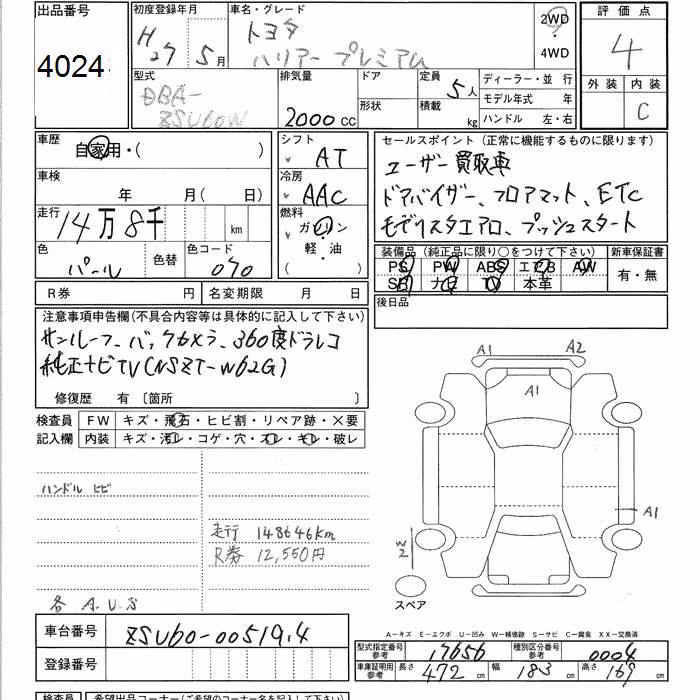 出品番号
4024
初度登録年月
H27 5月
車名・グレード
トヨタ
ハリアー プレミアム
2WD
・
4WD
評価点
4
外装 内装
C
型式
DBA-
ZSU60W
排気量
2000 CC
ドア
形状
定員 5人
積載 kg
ディーラー・並 行
モデル年式 年
ハンドル 左・右
車歴
自家用・( )
車検
年 月( 日)
走行
14万8千 km
色
パール
色替
色コード
070
R券 円 名変期限 月 日
シフト
AT
冷房
AAC
燃料
ガソリン
軽・油
( )
セールスポイント (正常に機能するものに限ります)
ユーザー買取車
ドアバイザー、フロアマット、ETC
モデリスタエアロ、プッシュスタート
装備品 (純正品に限り○をつけて下さい)
PS PW ABS エアB AW
SR ナビ TV 本革
新車保証書
有・無
後日品
注意事項申告欄(不具合内容等は具体的に記入して下さい)
サンルーフ、バックカメラ、360度ドラレコ
純正ナビTV(NSZT-W62G)
修復歴 有 〔箇所 〕
検査員 FW キズ・飛石・ヒビ割・リペア跡・×要
記入欄 内装 キズ・汚レ・コゲ・穴・スレ・キレ・破レ
ハンドル ヒビ
走行 148646km
R券 12,550円
各 A.U.S
A1 A2
A1
A1
W2
スペア
A-キズ E-エクボ U-凹み W-補修跡 S-サビ C-腐食 XX-交換済
車台番号 ZSU60-0051914
登録番号
型式指定番号 参考 17656
種別区分番号 参考 0004
車庫証明用 参考 長さ 472 cm 幅 183 cm 高さ 169 cm
検査員 希望出品コーナー(ご希望のコーナー名を記入下さい)